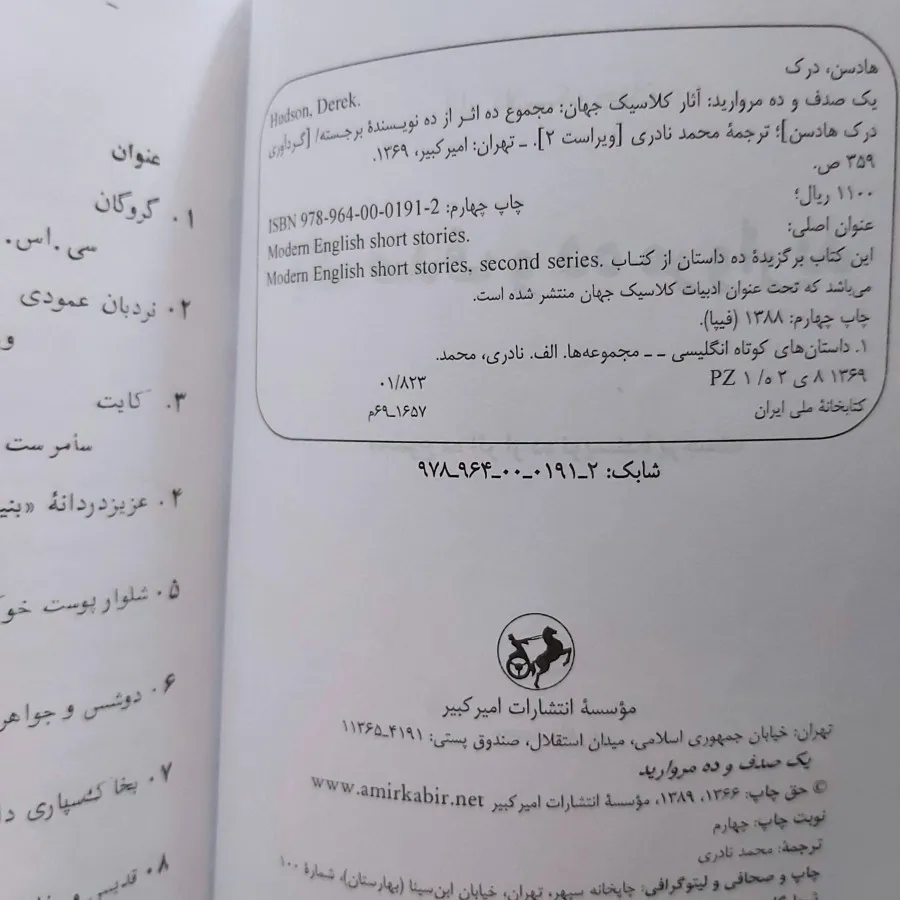 هادسن، درک
Hudson, Derek.
یک صدف و ده مروارید: آثار کلاسیک جهان: مجموع ده اثر از ده نویسندهٔ برجسته/ [گردآوری
درک هادسن]؛ ترجمهٔ محمد نادری [ویراست ۲]. ـ تهران: امیرکبیر، ۱۳۶۹.
۳۵۹ ص.
۱۱۰۰ ریال؛
چاپ چهارم: ISBN 978-964-00-0191-2
عنوان اصلی:
Modern English short stories.
این کتاب برگزیدهٔ ده داستان از کتاب Modern English short stories, second series.
می‌باشد که تحت عنوان ادبیات کلاسیک جهان منتشر شده است.
چاپ چهارم: ۱۳۸۸ (فیپا).
۱. داستان‌های کوتاه انگلیسی ــ مجموعه‌ها. الف. نادری، محمد.
۱۳۶۹ ۸ ی ۲ ه/ ۱ PZ
۰۱/۸۲۳
کتابخانهٔ ملی ایران
۱۶۵۷ـ۶۹م
شابک: ۲ـ۰۱۹۱ـ۰۰ـ۹۶۴ـ۹۷۸
مؤسسهٔ انتشارات امیرکبیر
تهران: خیابان جمهوری اسلامی، میدان استقلال، صندوق پستی: ۴۱۹۱ـ۱۱۳۶۵
یک صدف و ده مروارید
© حق چاپ: ۱۳۶۶، ۱۳۸۹، مؤسسهٔ انتشارات امیرکبیر www.amirkabir.net
نوبت چاپ: چهارم
ترجمه: محمد نادری
چاپ و صحافی و لیتوگرافی: چاپخانه سپهر، تهران، خیابان ابن‌سینا (بهارستان)، شمارهٔ ۱۰۰
عنوان
۱. گروگان
سی. اس.
۲. نردبان عمودی
۳. کایت
سامرست
۴. عزیزدردانهٔ
۵. شلوار پوست
۶. دوشس و جواهر
۷.
۸. قدیسی و